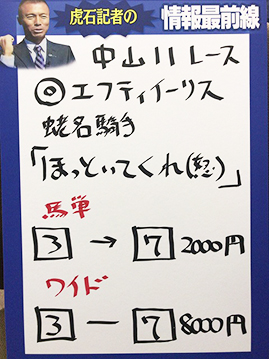 虎石記者の
情報最前線
中山11レース
◎エフティイーリス
蛯名騎手
「ほっといてくれ(怒)」
馬単
3 → 7 2000円
ワイド
3 — 7 8000円